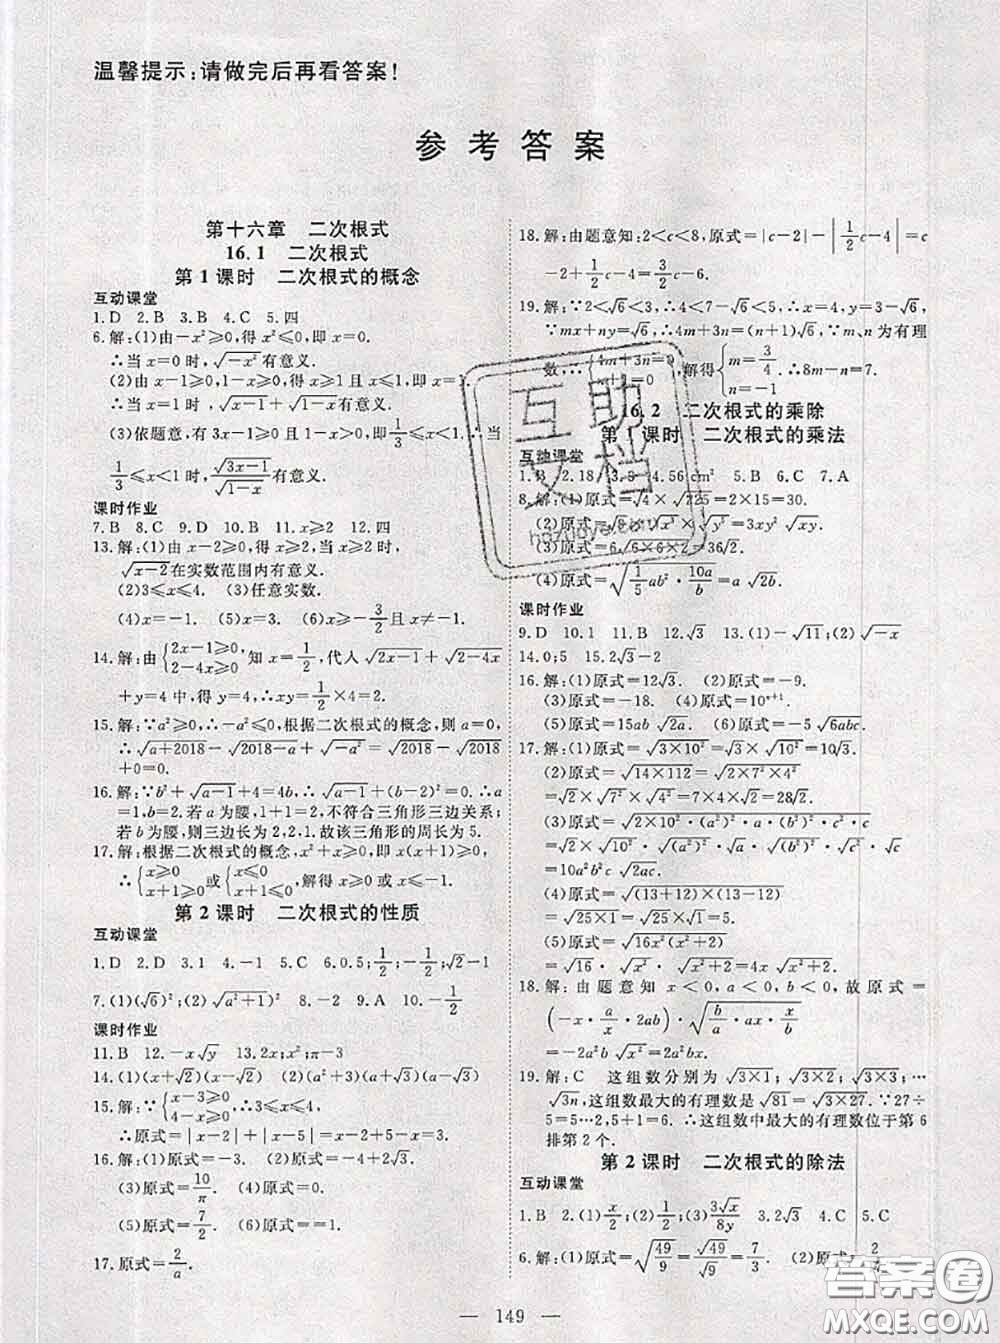 温馨提示:请做完后再看答案!
参考答案
第十六章 二次根式
16.1 二次根式
第1课时 二次根式的概念
互动课堂
1.D 2.B 3.B 4.C 5.四
6.解:(1)由-x²≥0,得x²≤0,即x=0.
∴当x=0时,√(-x²)有意义.
(2)由x-1≥0,1-x≥0,即x=1.
∴当x=1时,√(x-1)+√(1-x)有意义.
(3)依题意,有3x-1≥0且1-x>0,即1/3≤x<1.∴当
1/3≤x<1时,√(3x-1)/√(1-x)有意义.
课时作业
7.B 8.C 9.D 10.B 11.x≥2 12.四
13.解:(1)由x-2≥0,得x≥2,∴当x≥2时,
√(x-2)在实数范围内有意义.
(2)3≤x≤4. (3)任意实数.
(4)x=-1. (5)x≥-1/2且x≠0.
14.解:由{2x-1≥0 2-4x≥0知x=1/2,代人√(2x-1)+√(2-4x)
+y=4中,得y=4,∴xy=1/2×4=2.
15.解:∵a²≥0,∴-a²≤0,根据二次根式的概念,则a=0.
∴√(a+2018)-√(2018-a)+√(-a²)=√2018-√2018
+0=0.
16.解:∵b²+√(a-1)+4=4b,∴√(a-1)+(b-2)²=0.∴a
=1,b=2.若a为腰,1+1=2,不符合三角形三边关系;
若b为腰,则三边长为2,2,1.故该三角形的周长为5.
17.解:根据二次根式的概念,x²+x≥0,即x(x+1)≥0,
∴{x≥0 x+1≥0或{x≤0 x+1≤0,解得x≥0或x≤-1.
第2课时 二次根式的性质
互动课堂
1.D 2.D 3.1 4.-1 5.C 6.0.5;1/2;-1/2;√2-1
7.(1)(√6)²;(2)√(a²+1)² 8.-2 9.A 10.-1/2
课时作业
11.B 12.-x√y 13.2x;x²;π-3
14.(1)(x+√2)(x-√2) (2)(a²+3)(a+√3)(a-√3)
15.解:∵{x-3≥0 4-x≥0∴3≤x≤4.
∴原式=|x-2|+|x-5|=x-2-x+5=3.
16.解:(1)原式=-3. (2)原式=-4+2=-2.
(3)原式=10/π. (4)原式=0.
(5)原式=7/2. (6)原式=1.
17.原式=2/a.
18.解:由题意知:2<c<8,原式=|c-2|-|1/2c-4|=c
-2+1/2c-4=3/2c-6.
19.解:∵2<√6<3,∴4<7-√6<5,∴x=4,y=3-√6,
∵mx+ny=√6,∴4m+3n=(n+1)√6,∵m、n为有理
数,∴{4m+3n=0 n+1=0,解得{m=3/4 n=-1.∴8m-n=7.
16.2 二次根式的乘除
第1课时 二次根式的乘法
互动课堂
1.B 2.18 4.56cm² 5.B 6.C 7.A
8.解:(1)原式=√4×√225=2×15=30.
(2)原式=3xy²√xy.
(3)原式=6√(6×6×2)=36√2.
(4)原式=√(1/5ab²·10a/b)=a√2b.
课时作业
9.D 10.1 11.B 12.√3 13.(1)-√11;(2)√-x
14.0;5 15.2√3-2
16.解:(1)原式=12√3. (2)原式=-9.
(3)原式=-18. (4)原式=10ⁿ⁺¹.
(5)原式=15ab√2a. (6)原式=-5√6abc.
17.解:(1)原式=√(3×10²)=√3×√10²=10√3.
(2)原式=√(14×112)=√(2×7²×4²)
=√2×√7²×√4²=7×4×√2=28√2.
(3)原式=√(2×10²·(a²)²·a·(b²)²·c²·c)
=√2×√10²·√(a²)²·√a·√(b²)²·√c²·√c
=10a²b²c√2ac.
(4)原式=√((13+12)×(13-12))
=√(25×1)=√25×√1=5.
(5)原式=√(16x²(x²+2))
=√16·√x²·√(x²+2)=4x√(x²+2).
18.解:由题意知x<0,a<0,b<0,故原式=
(-x·a/x·2ab)·√(b/a·ax·x/b)
=-2a²b√x²=2a²bx.
19.解:C 这组数分别为√(3×1);√(3×2);√(3×3)…
√3n,这组数最大的有理数是√81=√(3×27.∵27÷
5=5…2,5+1=6.∴这组数中最大的有理数位于第6
排第2个.
第2课时 二次根式的除法
互动课堂
1.B 2.(1)x/2;(2)1/2;(3)3√x/8y 3.2√3 4.C 5.C
6.解:(1)原式=√(49/9)=√49/√9=7/3. (2)原式=
149
互助文档
答案圈
MXQE.COM